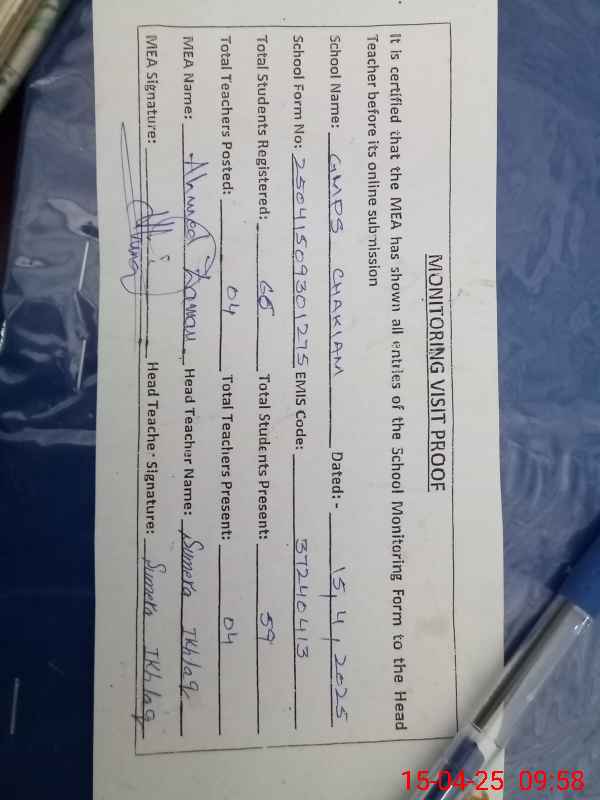 MONITORING VISIT PROOF
It is certified that the MEA has shown all entries of the School Monitoring Form to the Head
Teacher before its online submission
School Name: GMPS CHAKIAM Dated:- 15,4,2025
School Form No: 250415093012 75 EMIS Code: 37240413
Total Students Registered: 68 Total Students Present: 59
Total Teachers Posted: 04 Total Teachers Present: 04
MEA Name: Ahmed Head Teacher Name: Sumera Ikhlaq
MEA Signature: Head Teacher Signature: Sumera Ikhlaq
15-04-25 09:58